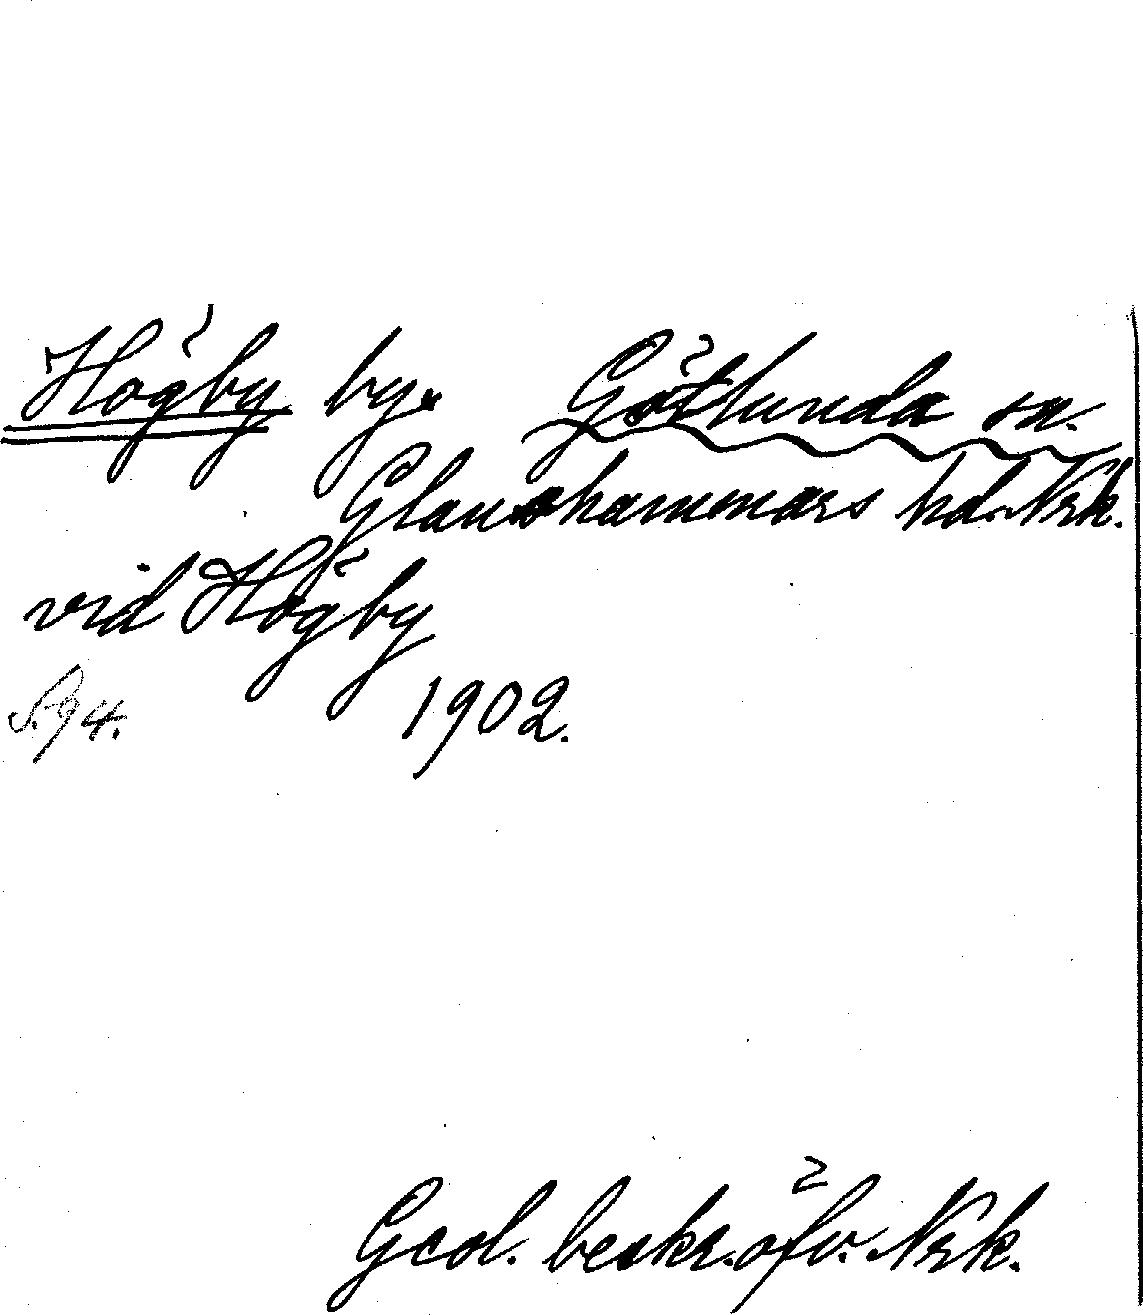 Högby by. Götlunda sn.
Glanshammars hd. Nrk.
vid Högby
S. 94. 1902.
Geol. beskr. öfv. Nrk.